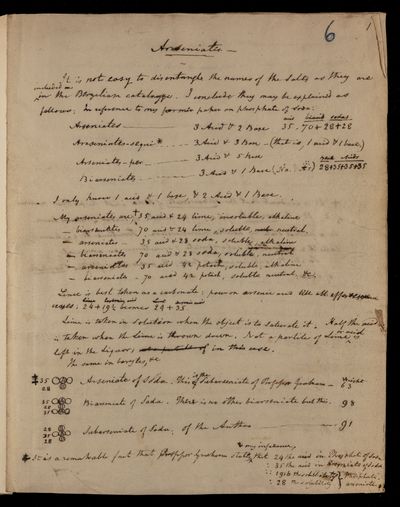 6
1
Arseniates —
It is not easy to disentangle the names of the salts as they are
included in the Berzelian catalogue. I conclude they may be explained as
follows: In reference to my former paper on phosphate of soda:
Arseniates — 3 Acid & 2 Base 35 . 70 + 28 + 28
Arseniates-sequi — 3 Acid & 3 Base — (that is, 1 acid & 1 base)
Arseniates-per — 3 Acid & 5 base
Biarseniates — 3 Acid & 1 Base (No. ) 28+35+35+35
I only know 1 acid & 1 base & 2 Acid & 1 Base.
My arseniates are 35 acid & 24 lime, insoluble, alkaline
— biarseniates — 70 acid & 24 lime, soluble, neutral
— arseniates — 35 acid & 28 soda, soluble, alkaline
— biarseniate 70 acid & 28 soda, soluble, neutral
— arseniates 35 acid 42 potash, soluble, alkaline
— biarseniate — 70 acid 42 potash, soluble neutral, &c.
Lime is best taken as a carbonate: pour on arsenic acid till all
24 + 19½ becomes 24 + 35
Lime is taken in solution when the object is to saturate it. Half the acid
is taken when the lime is thrown down. Not a particle of lime or acid is
left in the liquor, in this case.
The same in barytes, &c
35 28 Arseniate of Soda. This is the Subarseniate of Professor Graham — Weight 63
35 28 35 Biarseniate of Soda. There is no other biarseniate but this. 98
28 35 28 Subarseniate of Soda, of the Author — 91
It is a remarkable fact that Professor Graham states & my inference, that 24 the acid in Phosphate of Soda
: 35 the acid in Arseniate of Soda
:: 19.6 the solubility phosphate
: 28 the solubility arseniate